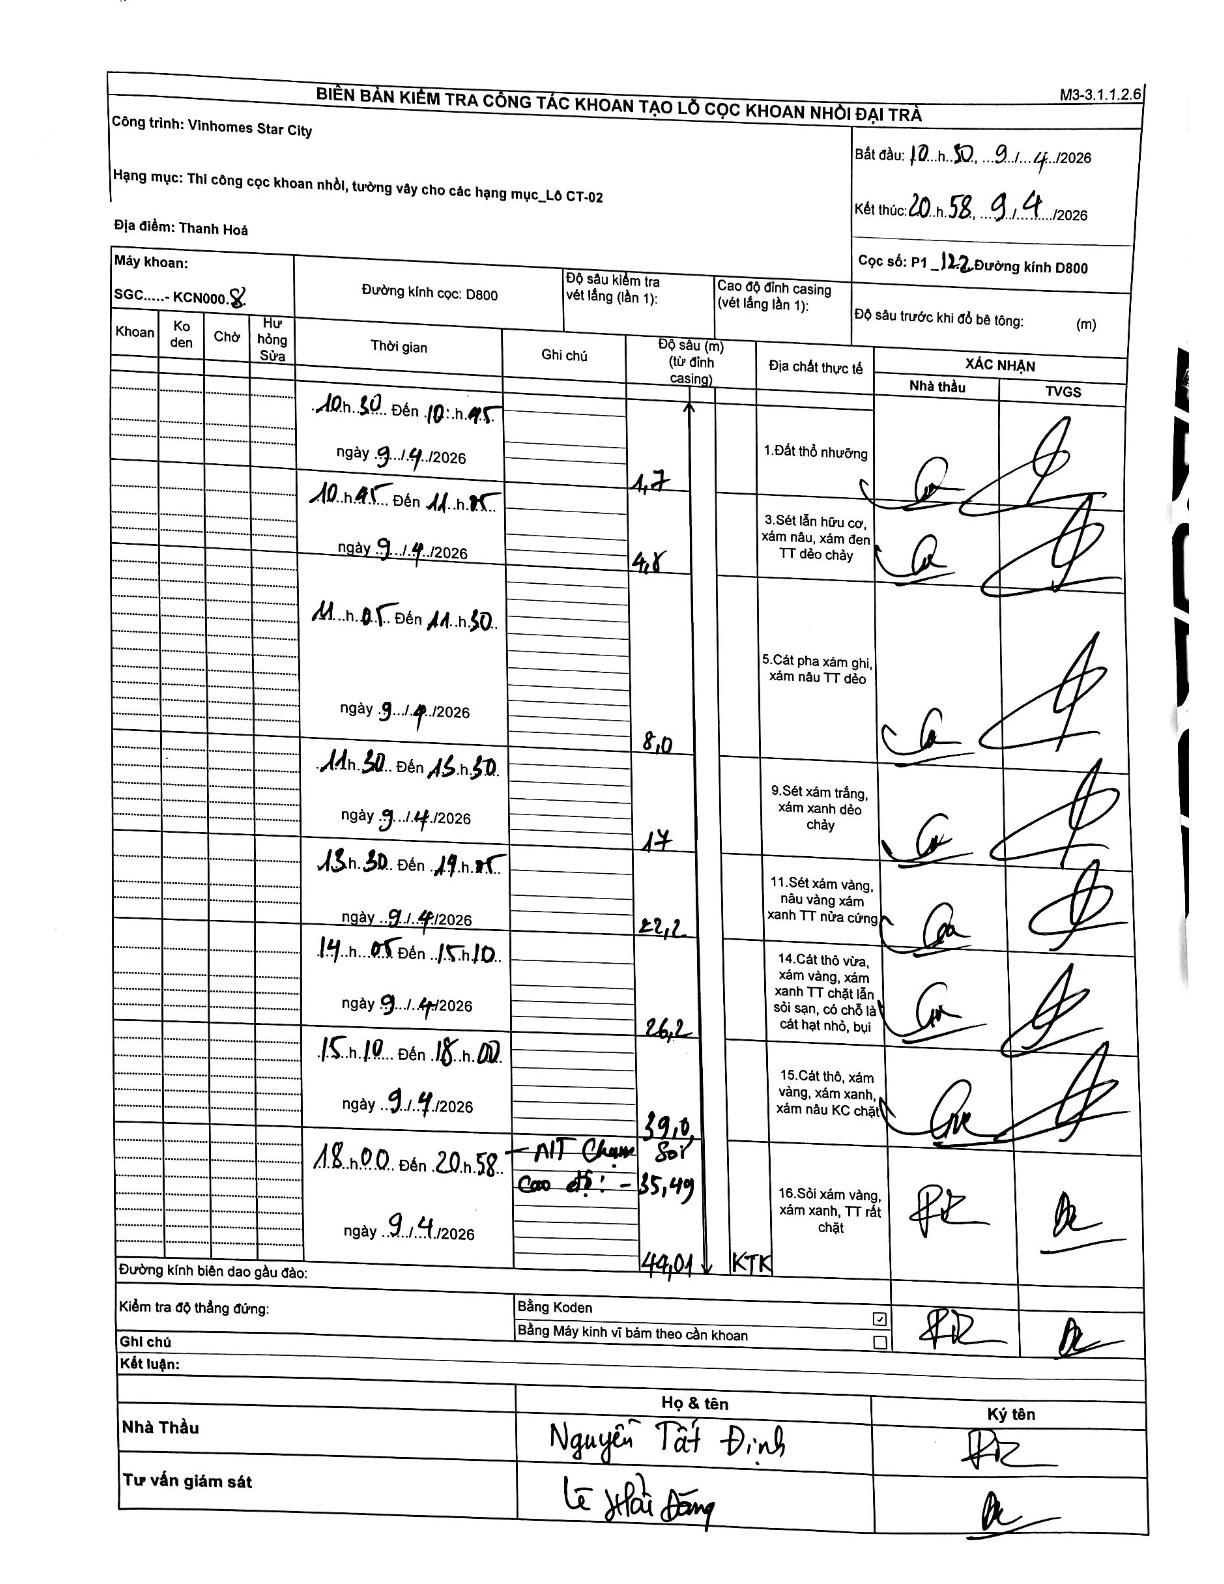 M3-3.1.1.2.6
BIÊN BẢN KIỂM TRA CÔNG TÁC KHOAN TẠO LỖ CỌC KHOAN NHỒI ĐẠI TRÀ
Công trình: Vinhomes Star City
Bắt đầu: 10 h 30, 9/4/2026
Hạng mục: Thi công cọc khoan nhồi, tường vây cho các hạng mục_Lô CT-02
Kết thúc: 20 h 58, 9/4/2026
Địa điểm: Thanh Hoá
Cọc số: P1_122 Đường kính D800
Máy khoan:
SGC.....- KCN000.8
Đường kính cọc: D800
Độ sâu kiểm tra
vét lắng (lần 1):
Cao độ đỉnh casing
(vét lắng lần 1):
Độ sâu trước khi đổ bê tông: (m)
Khoan
Ko
den
Chờ
Hư
hỏng
Sửa
Thời gian
Ghi chú
Độ sâu (m)
(từ đỉnh
casing)
Địa chất thực tế
XÁC NHẬN
Nhà thầu
TVGS
10 h 30 Đến 10 h 45
ngày 9/4/2026
1,7
1.Đất thổ nhưỡng
10 h 45 Đến 11 h 05
ngày 9/4/2026
4,8
3.Sét lẫn hữu cơ,
xám nâu, xám đen
TT dẻo chảy
11 h 05 Đến 11 h 30
ngày 9/4/2026
8,0
5.Cát pha xám ghi,
xám nâu TT dẻo
11 h 30 Đến 13 h 30
ngày 9/4/2026
17
9.Sét xám trắng,
xám xanh dẻo
chảy
13 h 30 Đến 14 h 05
ngày 9/4/2026
22,2
11.Sét xám vàng,
nâu vàng xám
xanh TT nửa cứng
14 h 05 Đến 15 h 10
ngày 9/4/2026
26,2
14.Cát thô vừa,
xám vàng, xám
xanh TT chặt lẫn
sỏi sạn, có chỗ là
cát hạt nhỏ, bụi
15 h 10 Đến 18 h 00
ngày 9/4/2026
39,0
15.Cát thô, xám
vàng, xám xanh,
xám nâu KC chặt
18 h 00 Đến 20 h 58
- NT Chạm Sỏi
Cao độ: - 35,49
ngày 9/4/2026
44,01
KTK
16.Sỏi xám vàng,
xám xanh, TT rất
chặt
Đường kính biên dao gầu đào:
Kiểm tra độ thẳng đứng:
Bằng Koden
Bằng Máy kinh vĩ bám theo cần khoan
Ghi chú
Kết luận:
Họ & tên
Ký tên
Nhà Thầu
Nguyễn Tất Định
Tư vấn giám sát
Lê Hải Đăng